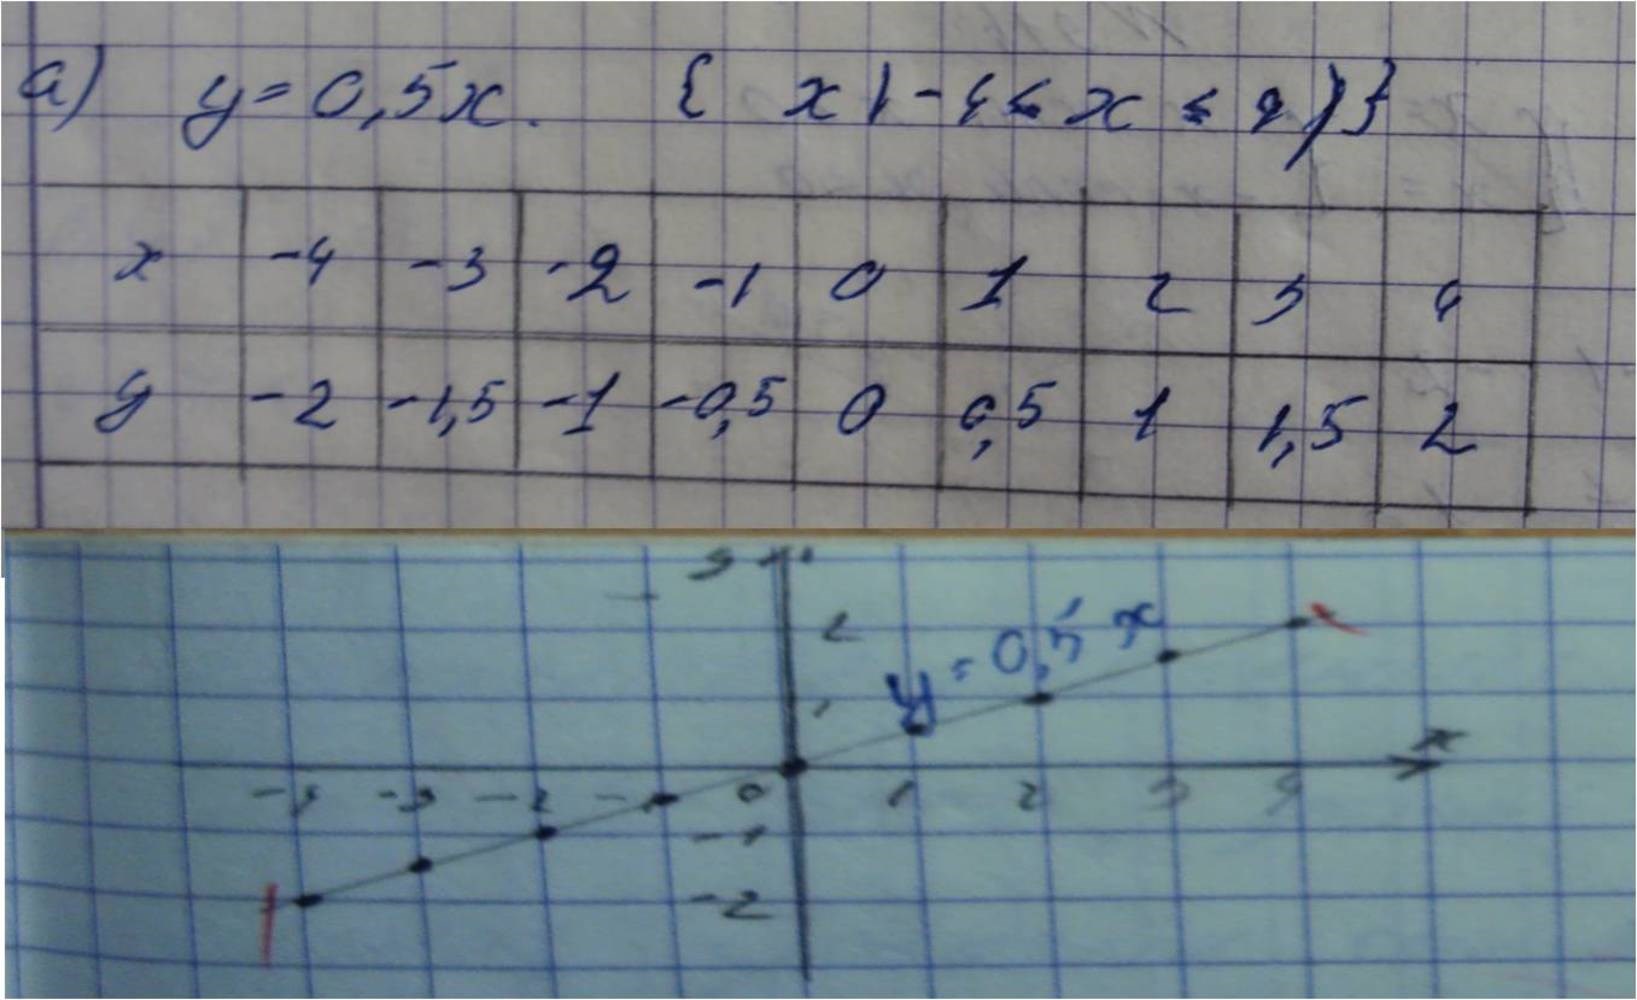 а) y = 0,5x. { x | -4 ≤ x ≤ 4 }
x -4 -3 -2 -1 0 1 2 3 4
y -2 -1,5 -1 -0,5 0 0,5 1 1,5 2
y
2
y = 0,5x
1
x
-4 -3 -2 -1 0 1 2 3 4
-1
-2